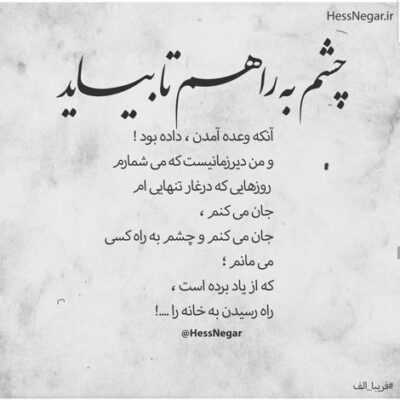 HessNegar.ir
چشم به راهم تا بیاید
آنکه وعده آمدن ، داده بود !
و من دیرزمانیست که می شمارم
روزهایی که درغار تنهایی ام
جان می کنم ،
جان می کنم و چشم به راه کسی
می مانم ؛
که از یاد برده است ،
راه رسیدن به خانه را ....!
@HessNegar
#فریبا_الف